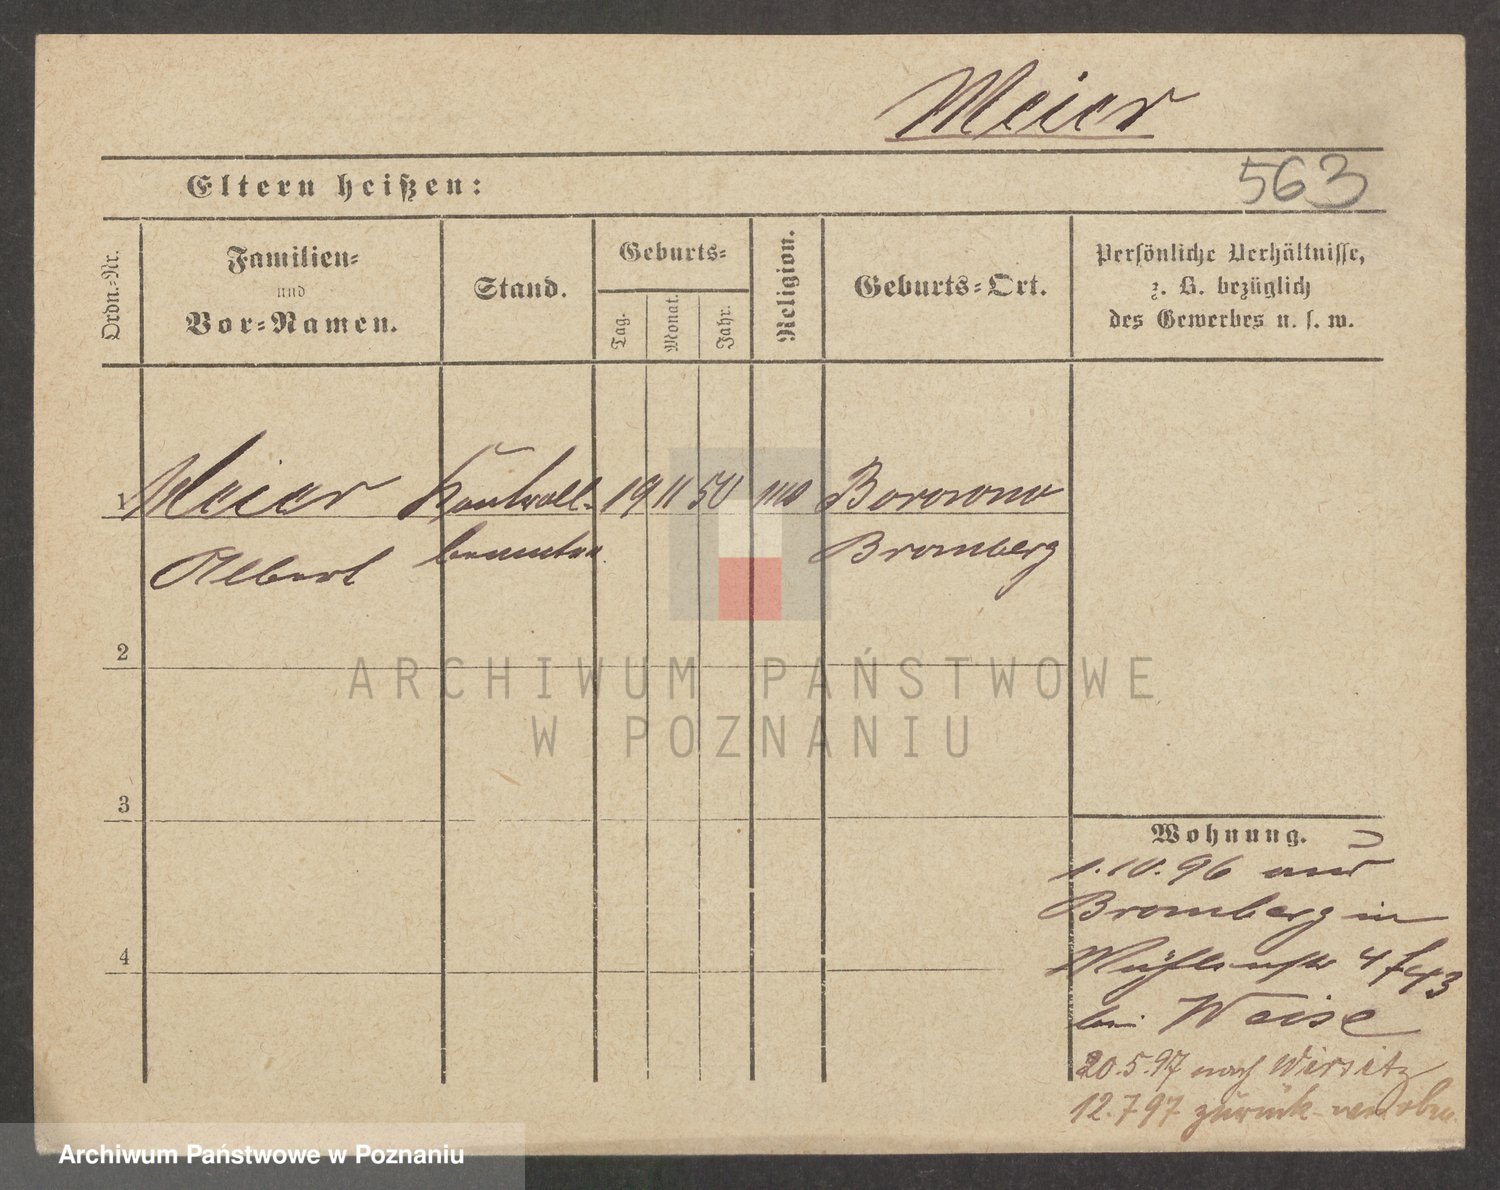 Meier
Eltern heißen:
563
Ordn.-Nr.
Familien-
und
Vor-Namen.
Stand.
Geburts-
Tag.
Monat.
Jahr.
Religion.
Geburts-Ort.
Persönliche Verhältnisse,
z. B. bezüglich
des Gewerbes u. s. w.
1 Meier Kontroll- 19 11 50
Albert beamter Bromberg
2
3
4
Wohnung.
1.10.96 aus
Bromberg in
bei Weise
20.5.97 nach Wirsitz
12.7 97 zurück
ARCHIWUM PAŃSTWOWE
W POZNANIU
Archiwum Państwowe w Poznaniu